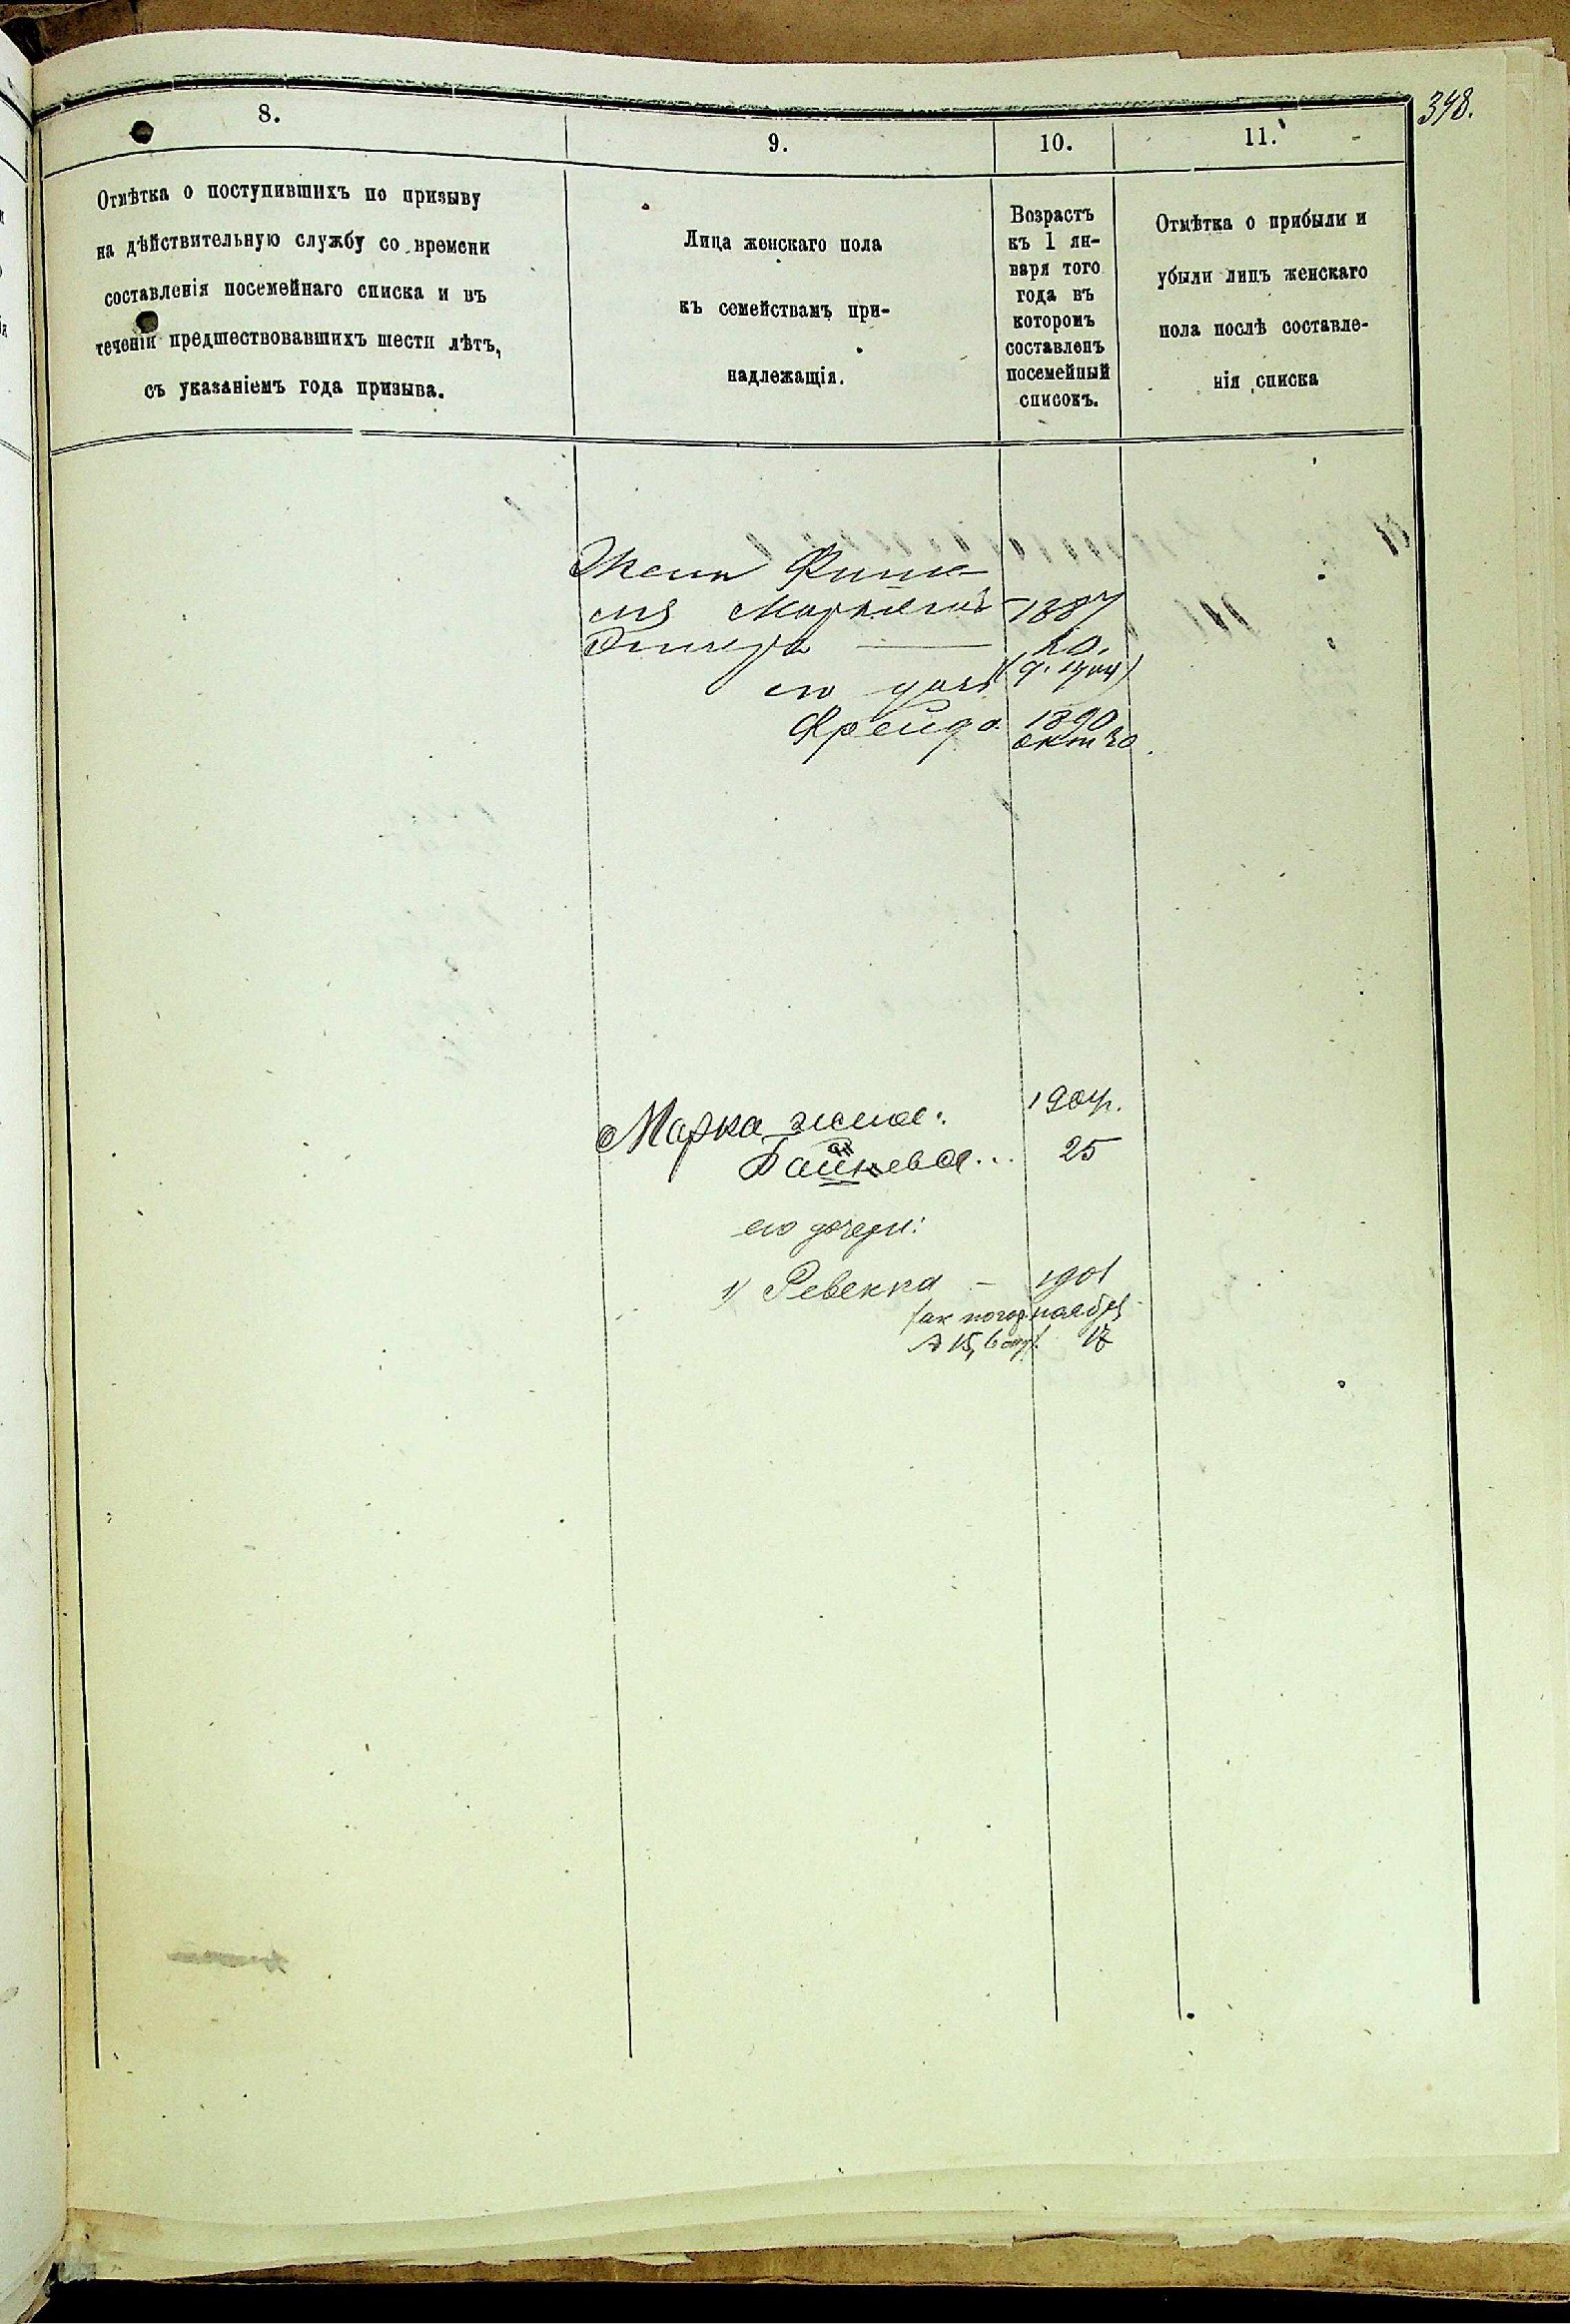 348.
8.
9.
10.
11.
Отмѣтка о поступившихъ по призыву
на дѣйствительную службу со времени
составленія посемейнаго списка и въ
теченіи предшествовавшихъ шести лѣтъ,
съ указаніемъ года призыва.
Лица женскаго пола
къ семействамъ при-
надлежащія.
Возрастъ
къ 1 ян-
варя того
года въ
которомъ
составленъ
посемейный
списокъ.
Отмѣтка о прибыли и
убыли лицъ женскаго
пола послѣ составле-
нія списка
Жена
1887
его дочь
Фрейда 1890
окт 30
Марка жена: 1904.
25
его дочери:
1) Ревекка — 1901